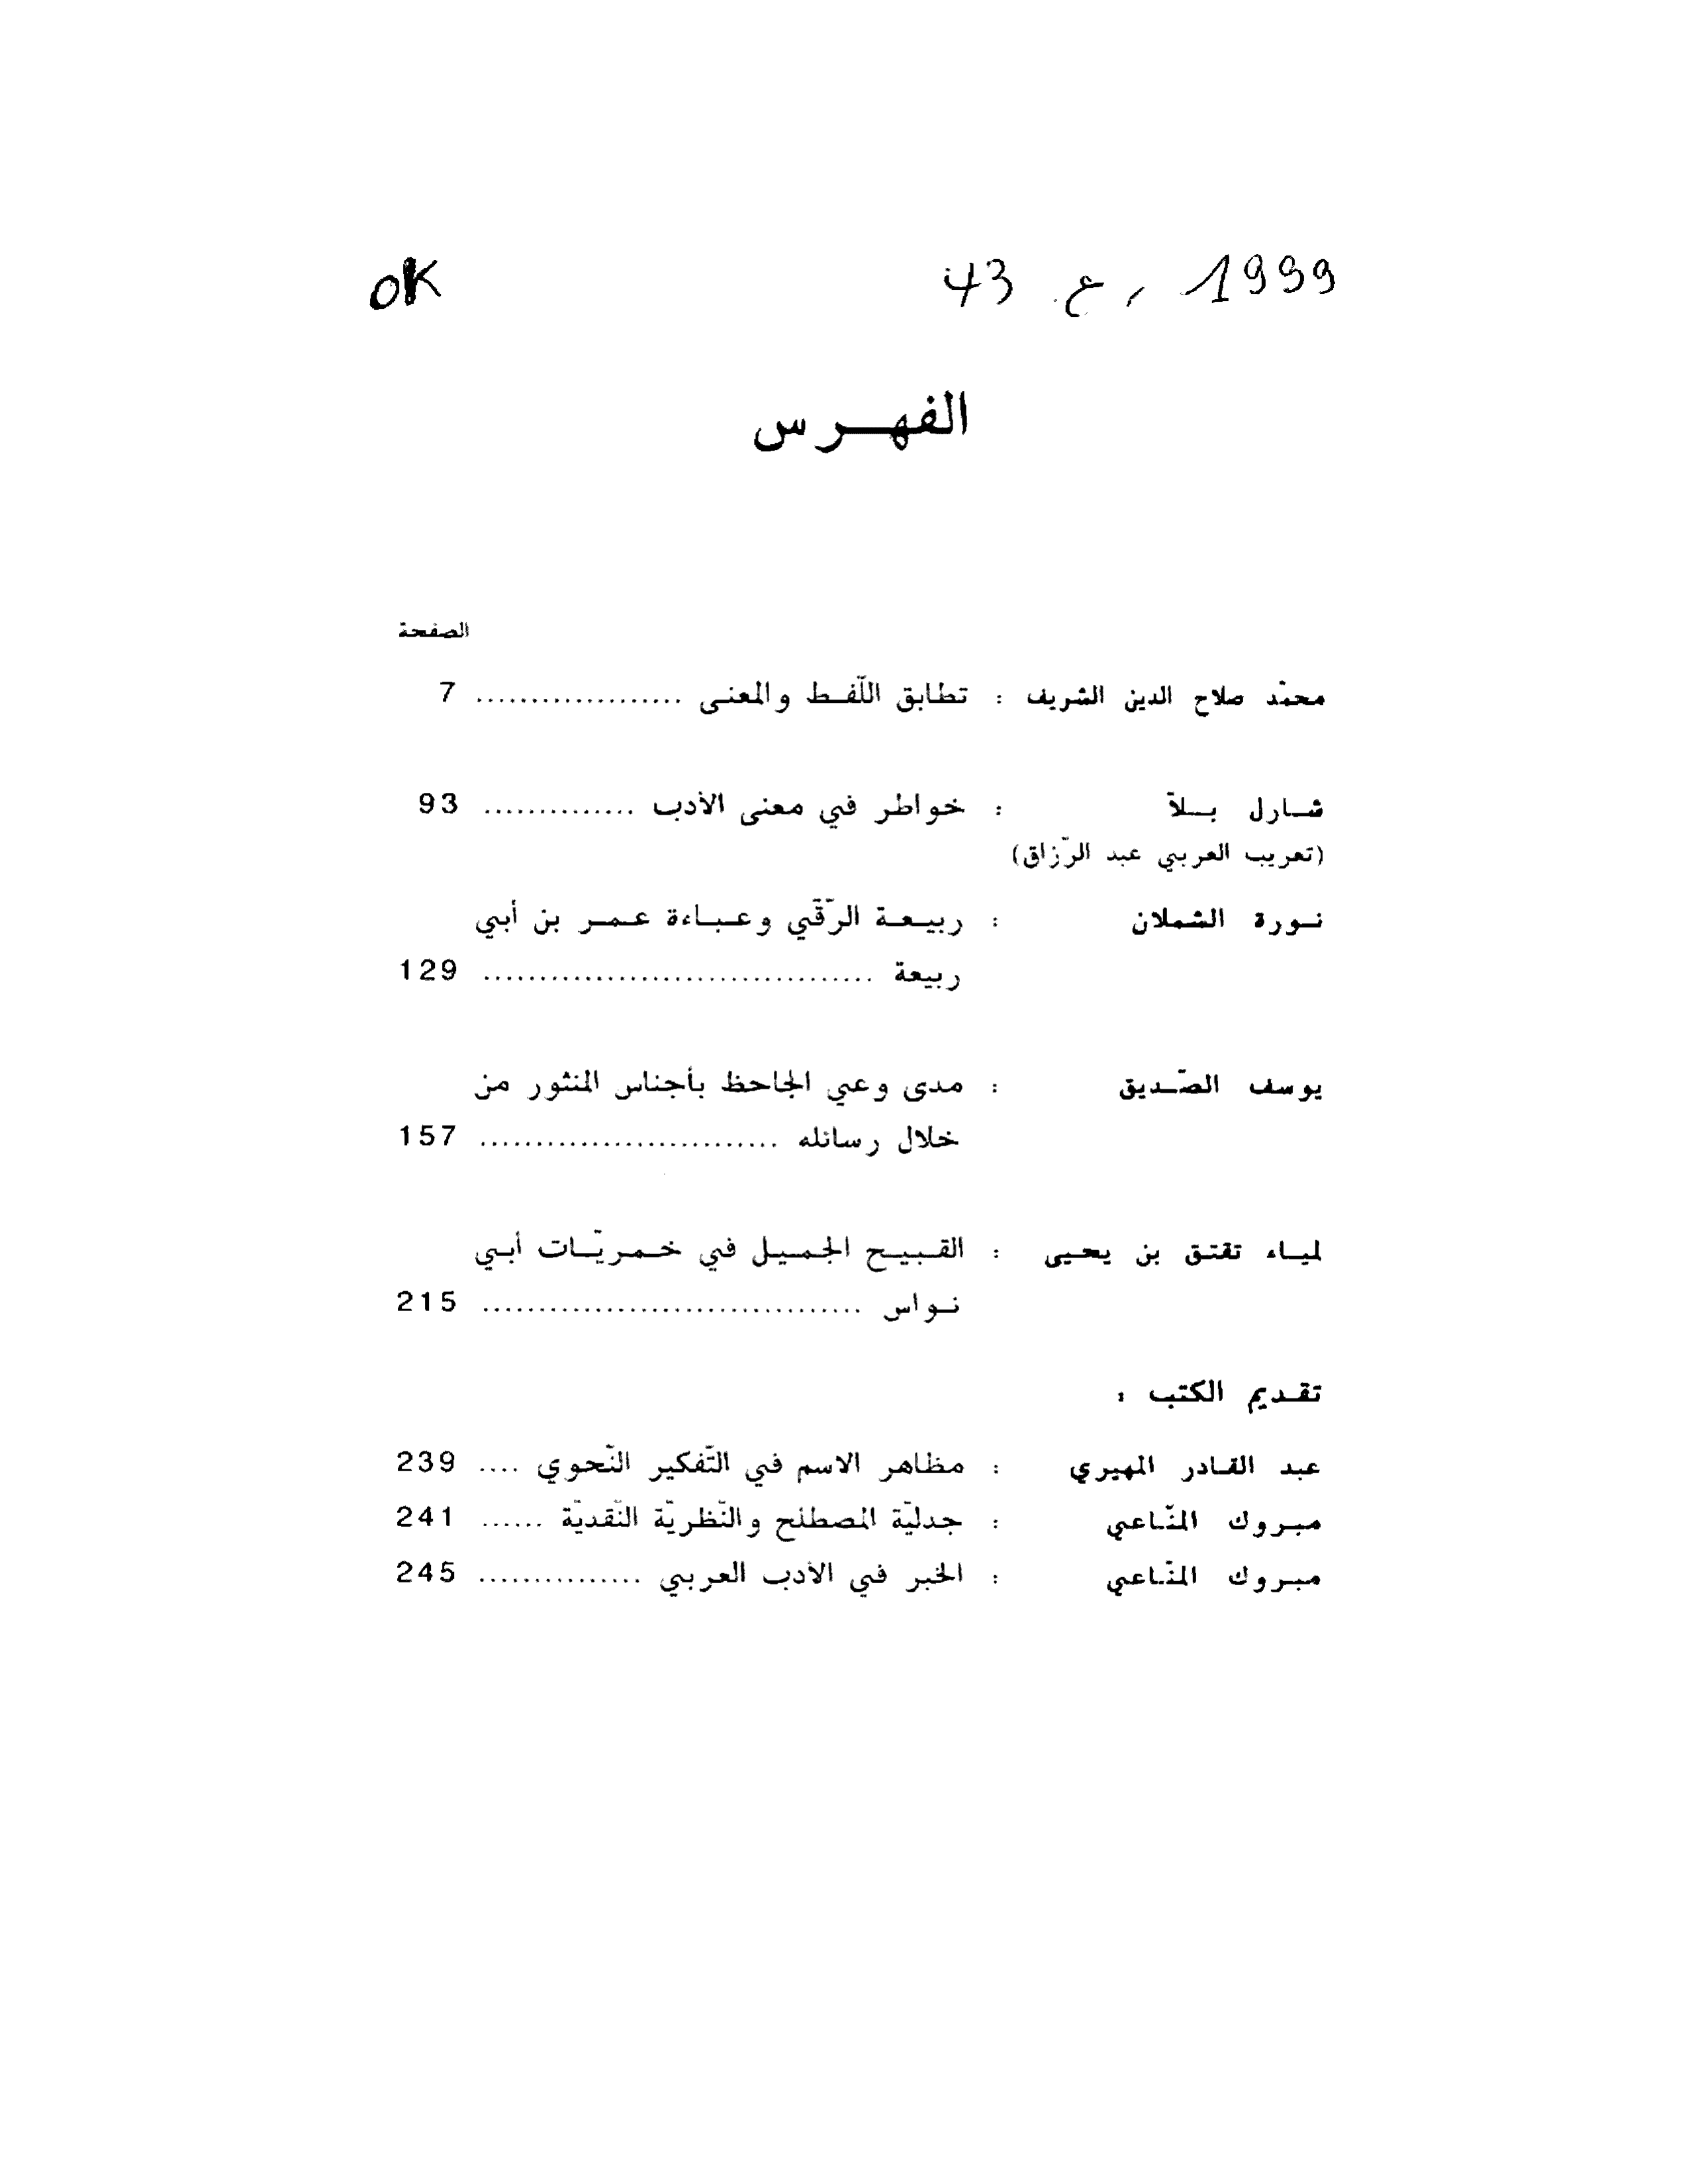 1999 ، ع 43
OK
الفهرس
الصفحة
محمّد صلاح الدين الشريف : تطابق اللّفظ والمعنى ................... 7
شارل بلاّ : خواطر في معنى الأدب .............. 93
(تعريب العربي عبد الرّزاق)
نورة الشملان : ربيعة الرّقّي وعباءة عمر بن أبي
ربيعة ................................... 129
يوسف الصّديق : مدى وعي الجاحظ بأجناس المنثور من
خلال رسائله ........................... 157
لمياء تقتق بن يحيى : القبيح الجميل في خمريّات أبي
نواس .................................. 215
تقديم الكتب :
عبد القادر المهيري : مظاهر الاسم في التّفكير النّحوي .... 239
مبروك المنّاعي : جدليّة المصطلح والنّظريّة النّقديّة ...... 241
مبروك المنّاعي : الخبر في الأدب العربي ............... 245